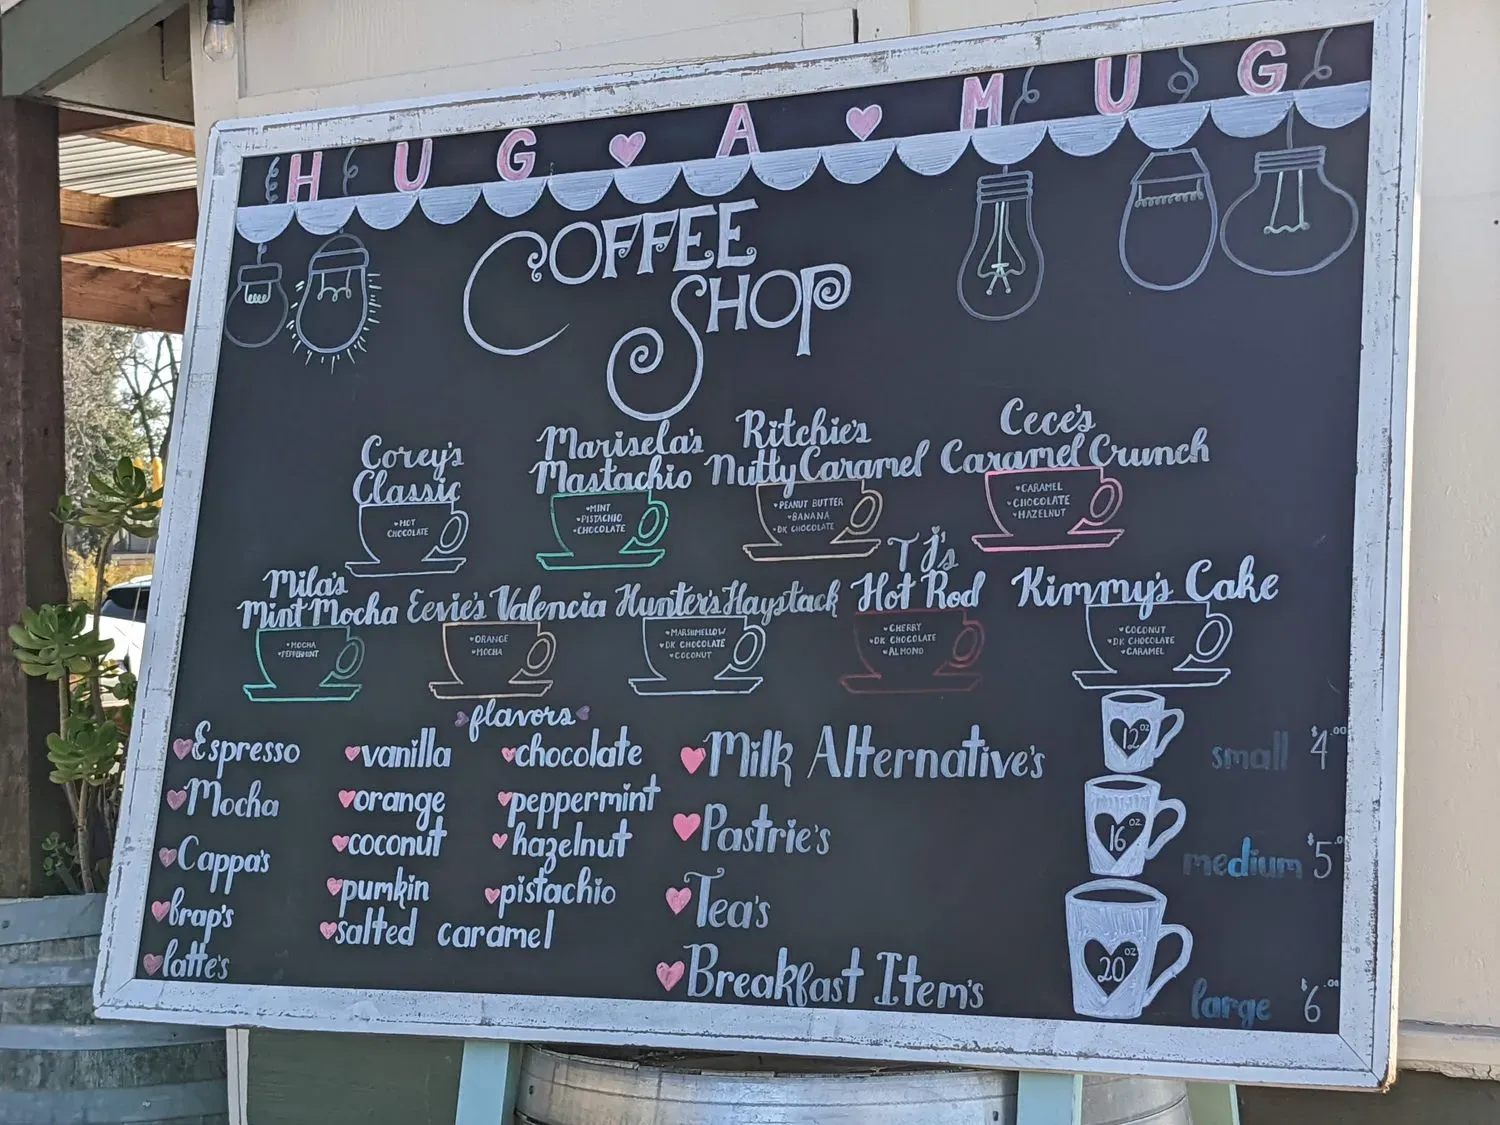 HUG ♥ A ♥ MUG
COFFEE
SHOP
Corey's
Classic
♥HOT
CHOCOLATE
Marisela's
Mastachio
♥MINT
♥PISTACHIO
♥CHOCOLATE
Ritchie's
Nutty Caramel
♥PEANUT BUTTER
♥BANANA
♥DK CHOCOLATE
Cece's
Caramel Crunch
♥CARAMEL
♥CHOCOLATE
♥HAZELNUT
Mila's
Mint Mocha
♥MOCHA
♥PEPPERMINT
Eevie's Valencia
♥ORANGE
♥MOCHA
Hunter's Haystack
♥MARSHMELLOW
♥DK CHOCOLATE
♥COCONUT
TJ's
Hot Rod
♥CHERRY
♥DK CHOCOLATE
♥ALMOND
Kimmy's Cake
♥COCONUT
♥DK CHOCOLATE
♥CARAMEL
♥Espresso
♥Mocha
♥Cappa's
♥frap's
♥latte's
♥flavors♥
♥vanilla
♥orange
♥coconut
♥pumkin
♥salted caramel
♥chocolate
♥peppermint
♥hazelnut
♥pistachio
♥Milk Alternative's
♥Pastrie's
♥Tea's
♥Breakfast Item's
12oz small $4.00
16oz medium $5.0
20oz large $6.00